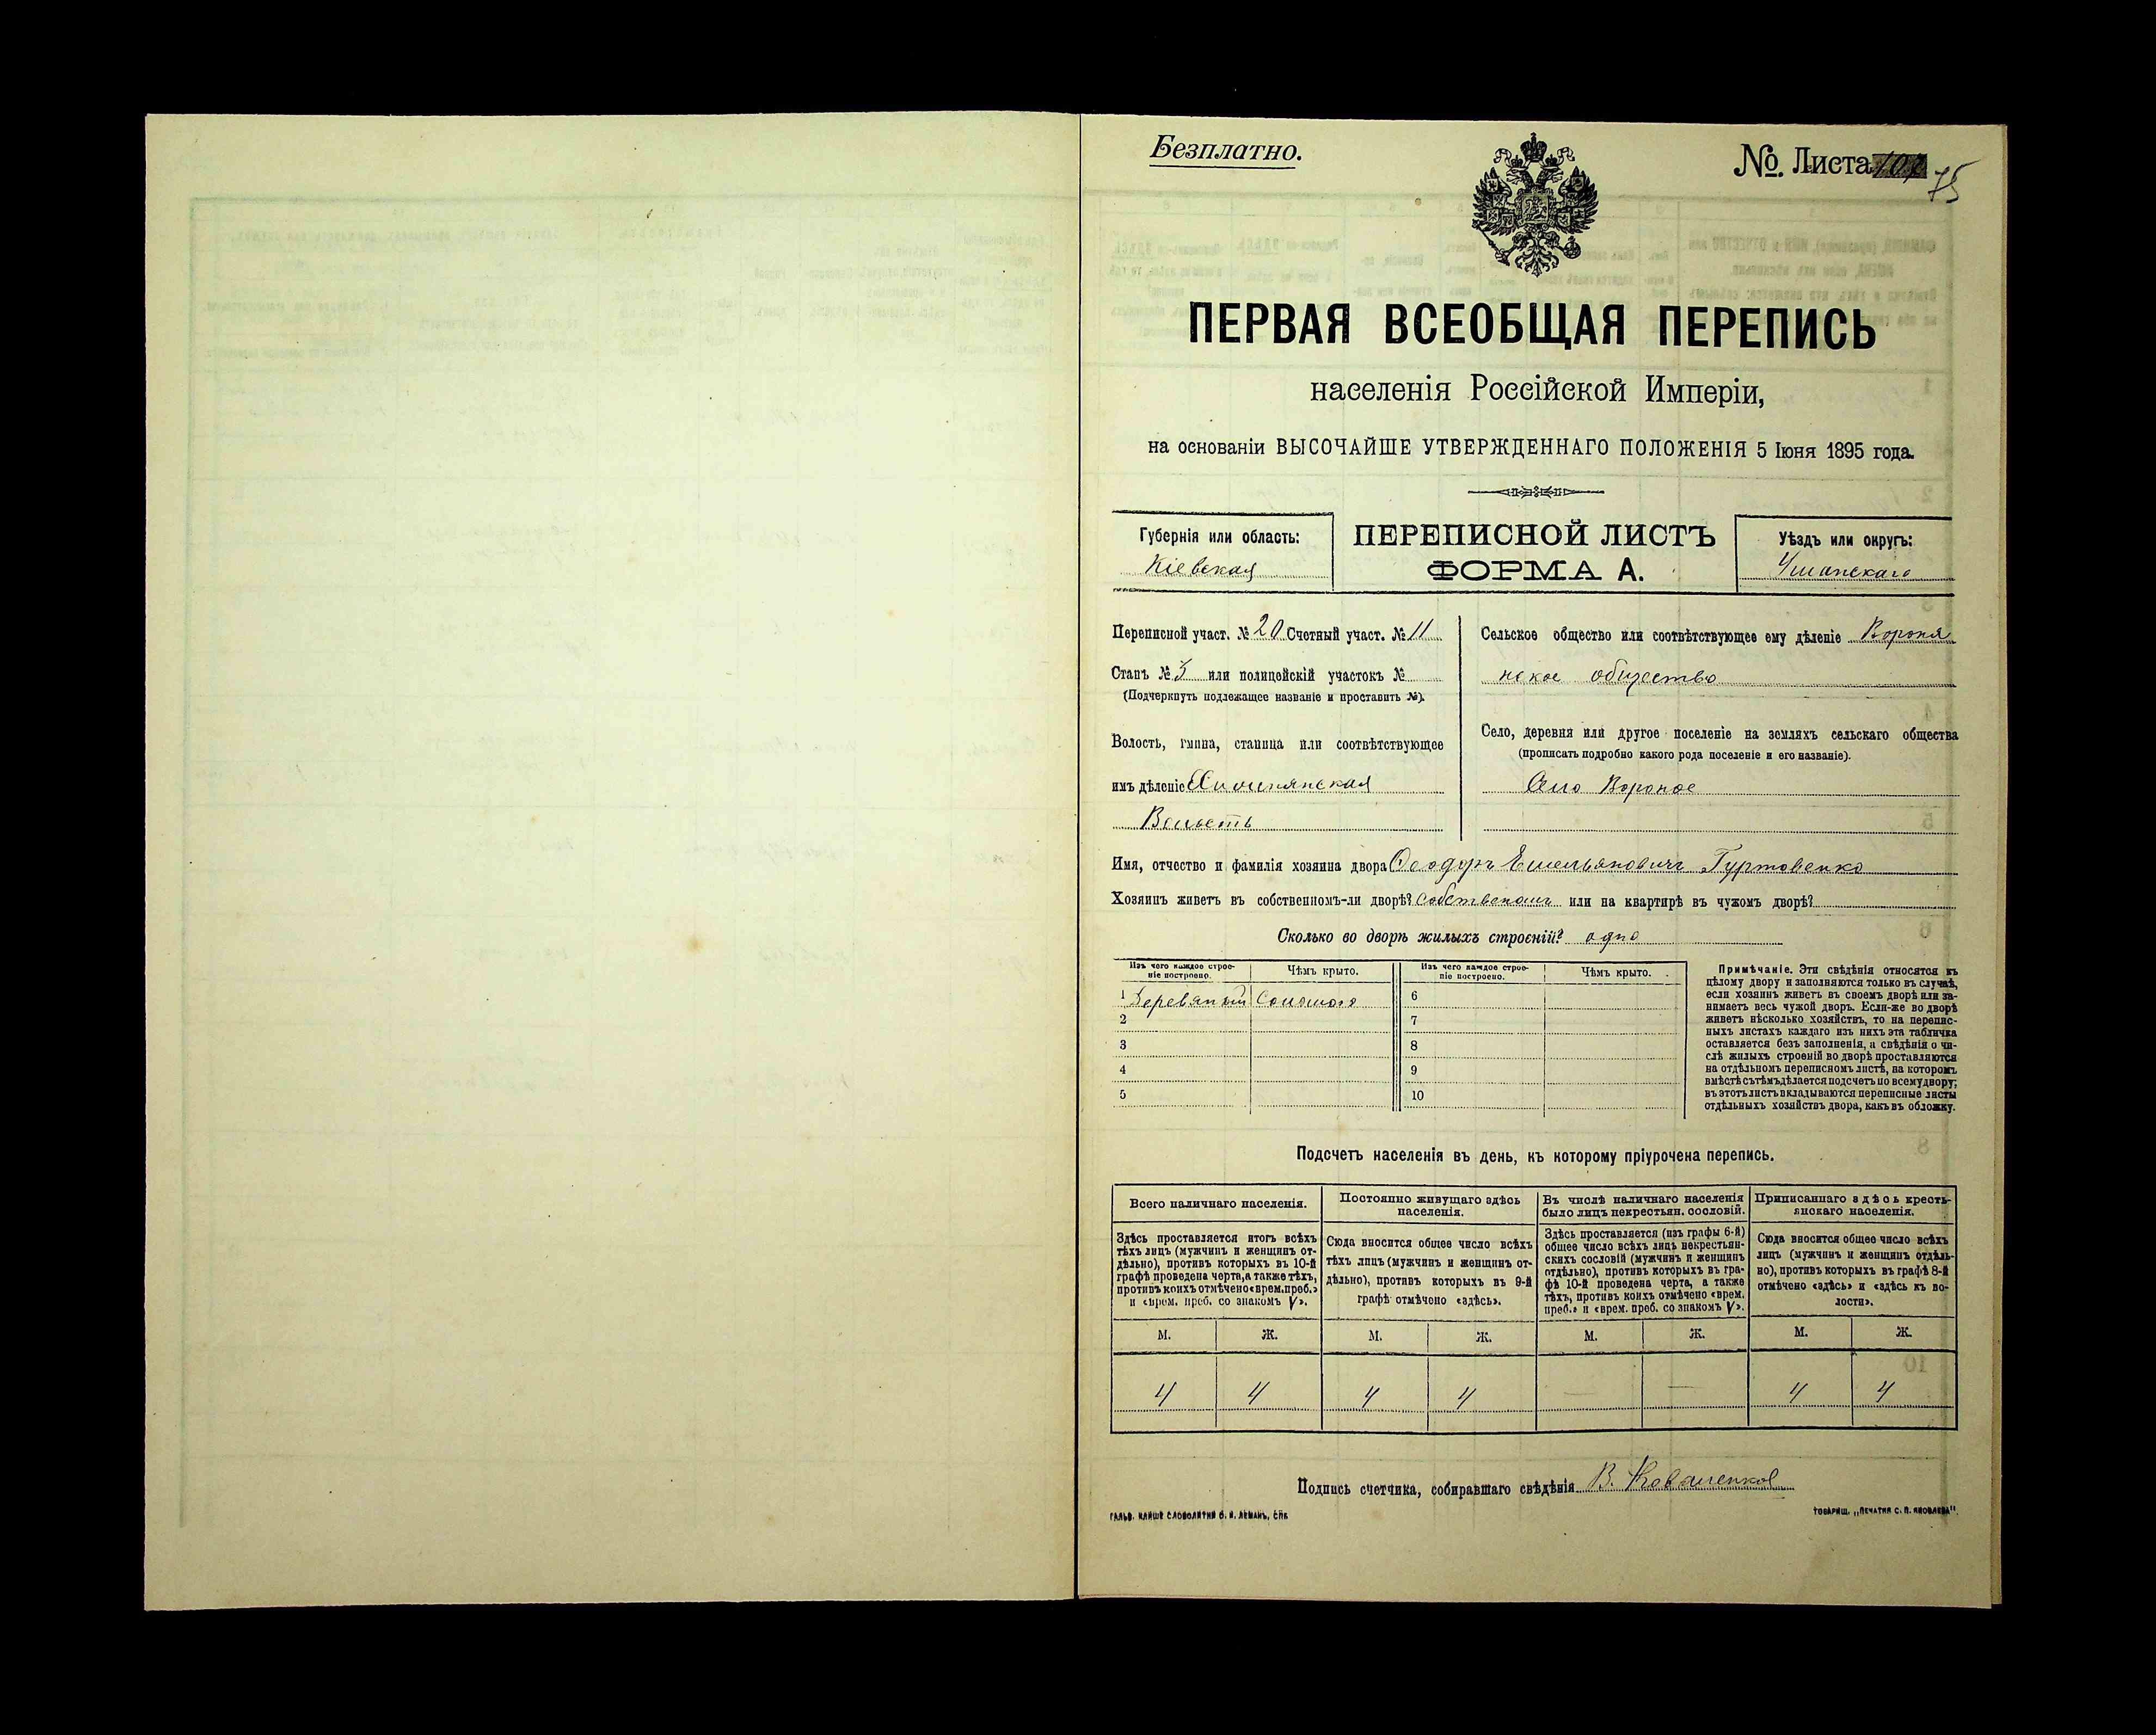 Безплатно.
№ Листа 75
ПЕРВАЯ ВСЕОБЩАЯ ПЕРЕПИСЬ
населенія Россійской Имперіи,
на основаніи ВЫСОЧАЙШЕ УТВЕРЖДЕННАГО ПОЛОЖЕНІЯ 5 Іюня 1895 года.
Губернія или область:
Кіевская
ПЕРЕПИСНОЙ ЛИСТЪ
ФОРМА А.
Уѣздъ или округъ:
Уманскаго
Переписной участ. № 20 Счетный участ. № 11
Станъ № 3 или полицейскій участокъ №
(Подчеркнуть подлежащее названіе и проставить №).
Волость, гмина, станица или соотвѣтствующее
имъ дѣленіе
Волость
Сельское общество или соотвѣтствующее ему дѣленіе Вороня
нское общество
Село, деревня или другое поселеніе на земляхъ сельскаго общества
(прописать подробно какого рода поселеніе и его названіе).
Село Вороное
Имя, отчество и фамилія хозяина двора Ѳеодоръ Емельяновичъ Гуртовенко
Хозяинъ живетъ въ собственномъ-ли дворѣ? собственомъ или на квартирѣ въ чужомъ дворѣ?
Сколько во дворѣ жилыхъ строеній? одно
Изъ чего каждое строе-
ніе построено.
Чѣмъ крыто.
Изъ чего каждое строе-
ніе построено.
Чѣмъ крыто.
1 Соломою 6
2 7
3 8
4 9
5 10
Примѣчаніе. Эти свѣдѣнія относятся къ
цѣлому двору и заполняются только въ случаѣ,
если хозяинъ живетъ въ своемъ дворѣ или за-
нимаетъ весь чужой дворъ. Если-же во дворѣ
живетъ нѣсколько хозяйствъ, то на перепис-
ныхъ листахъ каждаго изъ нихъ эта табличка
оставляется безъ заполненія, а свѣдѣнія о чи-
слѣ жилыхъ строеній во дворѣ проставляются
на отдѣльномъ переписномъ листѣ, на которомъ
вмѣстѣ съ тѣмъ дѣлается подсчетъ по всему двору;
въ этотъ листъ вкладываются переписные листы
отдѣльныхъ хозяйствъ двора, какъ въ обложку.
Подсчетъ населенія въ день, къ которому пріурочена перепись.
Всего наличнаго населенія.
Здѣсь проставляется итогъ всѣхъ
тѣхъ лицъ (мужчинъ и женщинъ от-
дѣльно), противъ которыхъ въ 10-й
графѣ проведена черта, а также тѣхъ,
противъ коихъ отмѣчено «врем. преб.»
и «врем. преб. со знакомъ V».
Постоянно живущаго здѣсь
населенія.
Сюда вносится общее число всѣхъ
тѣхъ лицъ (мужчинъ и женщинъ от-
дѣльно), противъ которыхъ въ 9-й
графѣ отмѣчено «здѣсь».
Въ числѣ наличнаго населенія
было лицъ некрестьян. сословій.
Здѣсь проставляется (изъ графы 6-й)
общее число всѣхъ лицъ некрестьян-
скихъ сословій (мужчинъ и женщинъ
отдѣльно), противъ которыхъ въ гра-
фѣ 10-й проведена черта, а также
тѣхъ, противъ коихъ отмѣчено «врем.
преб.» и «врем. преб. со знакомъ V».
Приписаннаго здѣсь кресть-
янскаго населенія.
Сюда вносится общее число всѣхъ
лицъ (мужчинъ и женщинъ отдѣль-
но), противъ которыхъ въ графѣ 8-й
отмѣчено «здѣсь» и «здѣсь къ во-
лости».
М. Ж. М. Ж. М. Ж. М. Ж.
4 4 4 4 — — 4 4
Подпись счетчика, собиравшаго свѣдѣнія В.
ГАЛЬВ. КЛИШЕ СЛОВОЛИТНИ О. И. ЛЕМАНЪ, СПБ.
ТОВАРИЩ. „ПЕЧАТНЯ С. П. ЯКОВЛЕВА".